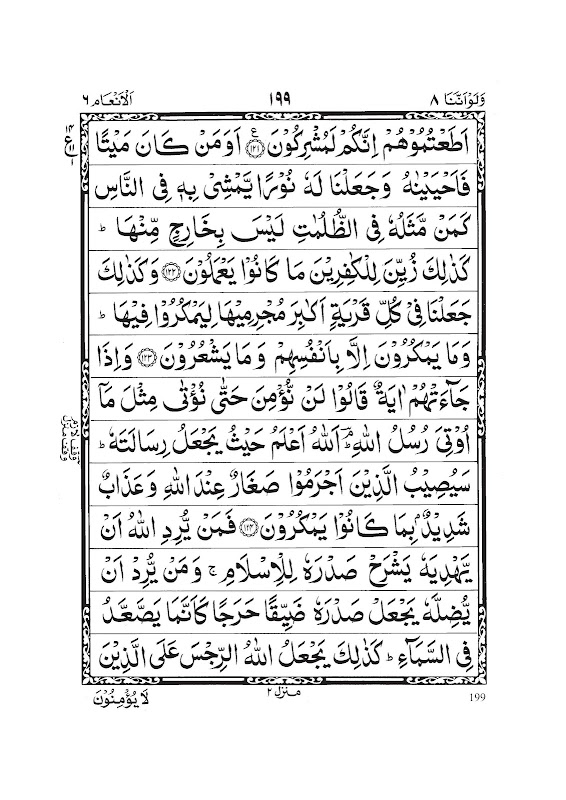 وَلَوْ اَنَّنَا ٨
١٩٩
اَلْاَنْعَام ٦
اَطَعْتُمُوْهُمْ اِنَّكُمْ لَمُشْرِكُوْنَ ﴿١٢١﴾ ع اَوَمَنْ كَانَ مَيْتًا
فَاَحْيَيْنٰهُ وَجَعَلْنَا لَهٗ نُوْرًا يَّمْشِيْ بِهٖ فِى النَّاسِ
كَمَنْ مَّثَلُهٗ فِى الظُّلُمٰتِ لَيْسَ بِخَارِجٍ مِّنْهَا ؕ
كَذٰلِكَ زُيِّنَ لِلْكٰفِرِيْنَ مَا كَانُوْا يَعْمَلُوْنَ ﴿١٢٢﴾ وَكَذٰلِكَ
جَعَلْنَا فِيْ كُلِّ قَرْيَةٍ اَكٰبِرَ مُجْرِمِيْهَا لِيَمْكُرُوْا فِيْهَا ؕ
وَمَا يَمْكُرُوْنَ اِلَّا بِاَنْفُسِهِمْ وَمَا يَشْعُرُوْنَ ﴿١٢٣﴾ وَاِذَا
جَآءَتْهُمْ اٰيَةٌ قَالُوْا لَنْ نُّؤْمِنَ حَتّٰى نُؤْتٰى مِثْلَ مَاۤ
اُوْتِيَ رُسُلُ اللّٰهِ ؔۘ اَللّٰهُ اَعْلَمُ حَيْثُ يَجْعَلُ رِسَالَتَهٗ ؕ
سَيُصِيْبُ الَّذِيْنَ اَجْرَمُوْا صَغَارٌ عِنْدَ اللّٰهِ وَعَذَابٌ
شَدِيْدٌۢ بِمَا كَانُوْا يَمْكُرُوْنَ ﴿١٢٤﴾ فَمَنْ يُّرِدِ اللّٰهُ اَنْ
يَّهْدِيَهٗ يَشْرَحْ صَدْرَهٗ لِلْاِسْلَامِ ۚ وَمَنْ يُّرِدْ اَنْ
يُّضِلَّهٗ يَجْعَلْ صَدْرَهٗ ضَيِّقًا حَرَجًا كَاَنَّمَا يَصَّعَّدُ
فِى السَّمَآءِ ؕ كَذٰلِكَ يَجْعَلُ اللّٰهُ الرِّجْسَ عَلَى الَّذِيْنَ
مَنْزِل ٢
لَا يُؤْمِنُوْنَ
199